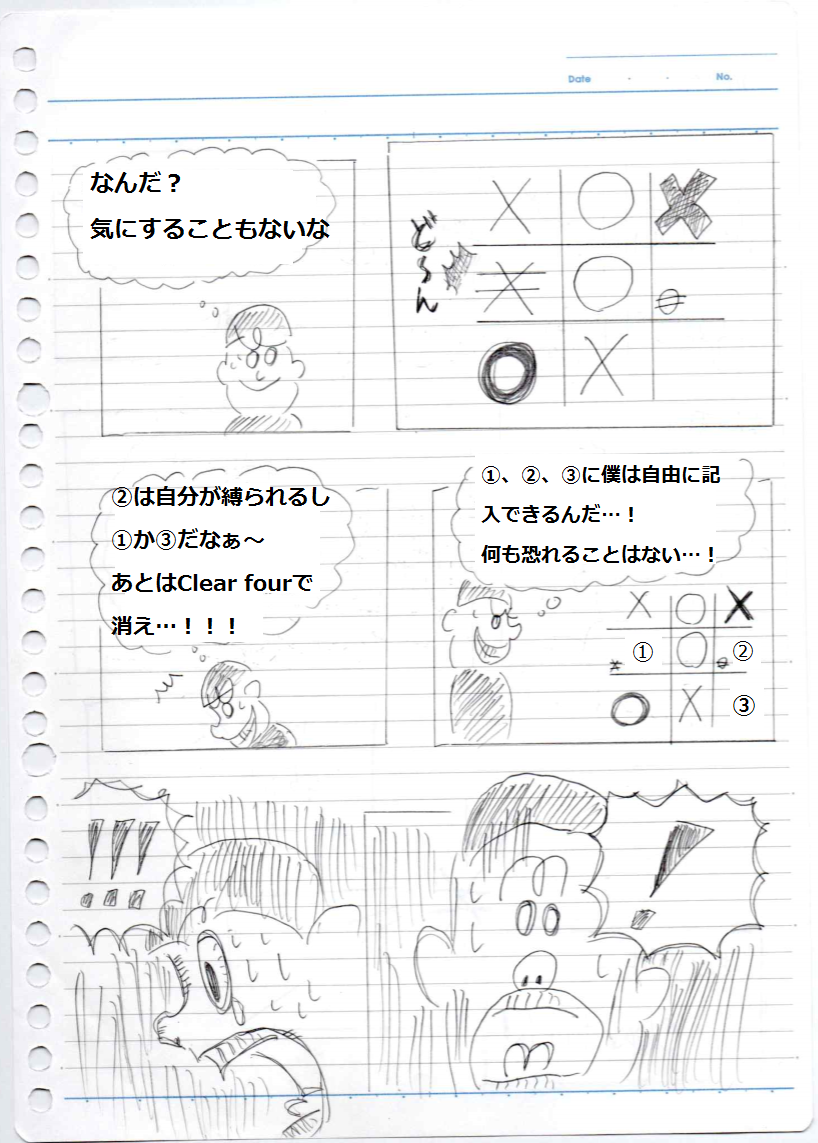 Date
No.
どーん
なんだ？
気にすることもないな
①、②、③に僕は自由に記
入できるんだ…！
何も恐れることはない…！
①
②
③
②は自分が縛られるし
①か③だなぁ～
あとはClear fourで
消え…！！！
！
！！！